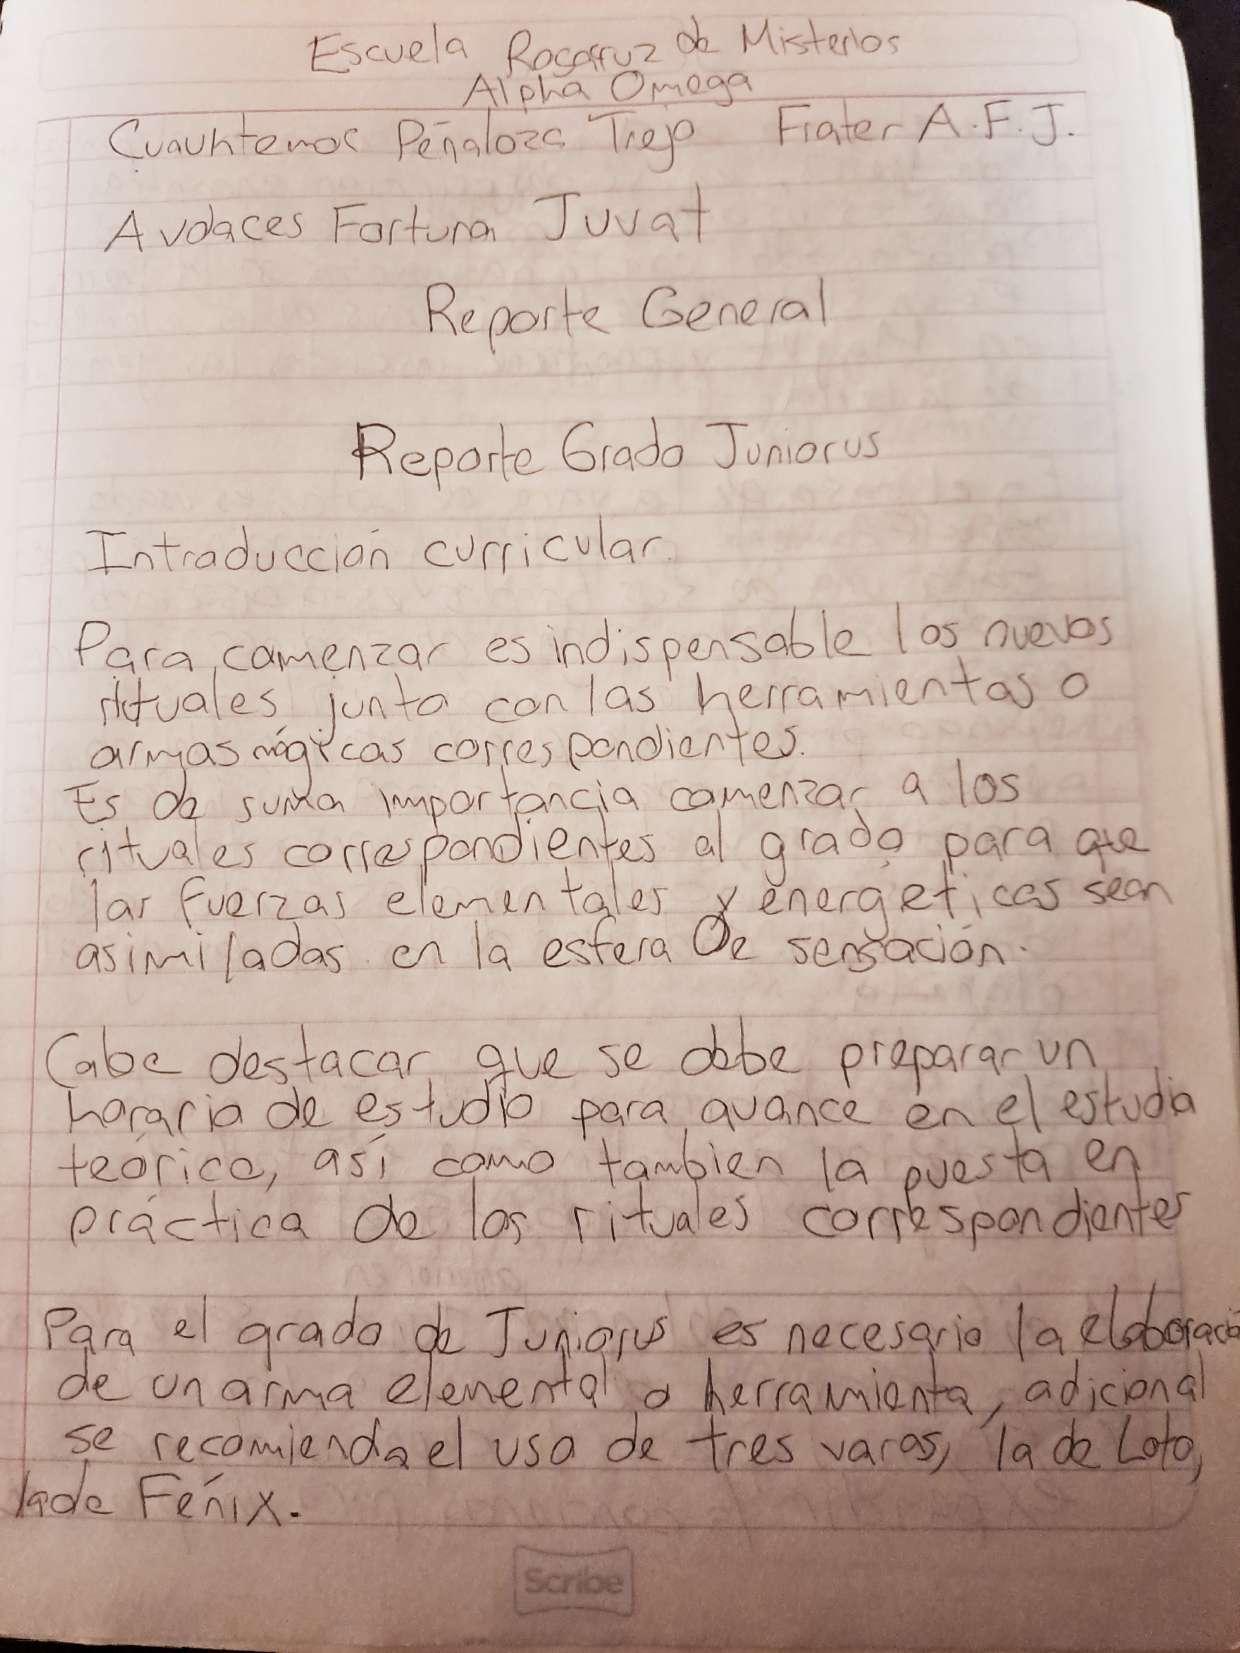 Escuela Rosacruz de Misterios
Alpha Omega
Cuauhtemoc Peñaloza Trejo Frater A.F.J.
Audaces Fortuna Juvat
Reporte General
Reporte Grado Juniorus
Introducción curricular.
Para comenzar es indispensable los nuevos
rituales junto con las herramientas o
armas mágicas correspondientes.
Es de suma importancia comenzar a los
rituales correspondientes al grado para que
las fuerzas elementales y energéticas sean
asimiladas en la esfera De sensación.
Cabe destacar que se debe preparar un
horario de estudio para avance en el estudio
teórico, así como tambien la puesta en
práctica de los rituales correspondientes
Para el grado de Juniorus es necesario la elaboració
de un arma elemental o herramienta, adicional
se recomienda el uso de tres varas, la de Loto,
la de Fénix.
Scribe